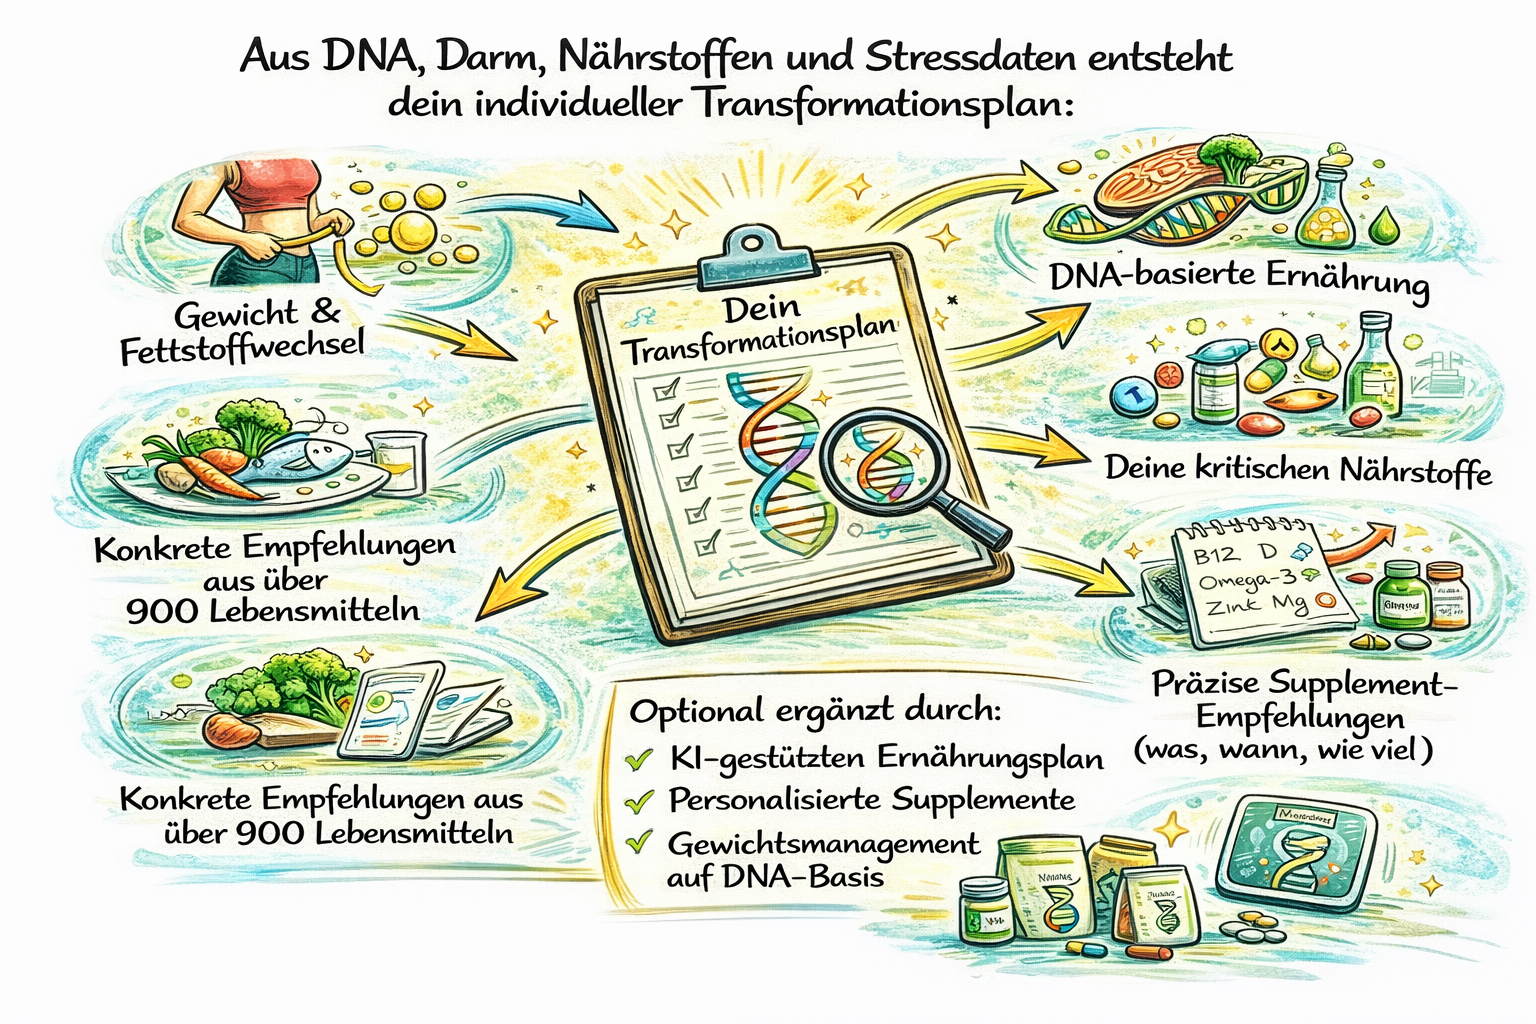 Aus DNA, Darm, Nährstoffen und Stressdaten entsteht
dein individueller Transformationsplan:
Gewicht &
Fettstoffwechsel
Konkrete Empfehlungen
aus über
900 Lebensmitteln
Konkrete Empfehlungen aus
über 900 Lebensmitteln
Dein
Transformationsplan
DNA-basierte Ernährung
Deine kritischen Nährstoffe
B12 D
Omega-3
Zink Mg
Präzise Supplement-
Empfehlungen
(was, wann, wie viel)
Optional ergänzt durch:
KI-gestützten Ernährungsplan
Personalisierte Supplemente
Gewichtsmanagement
auf DNA-Basis